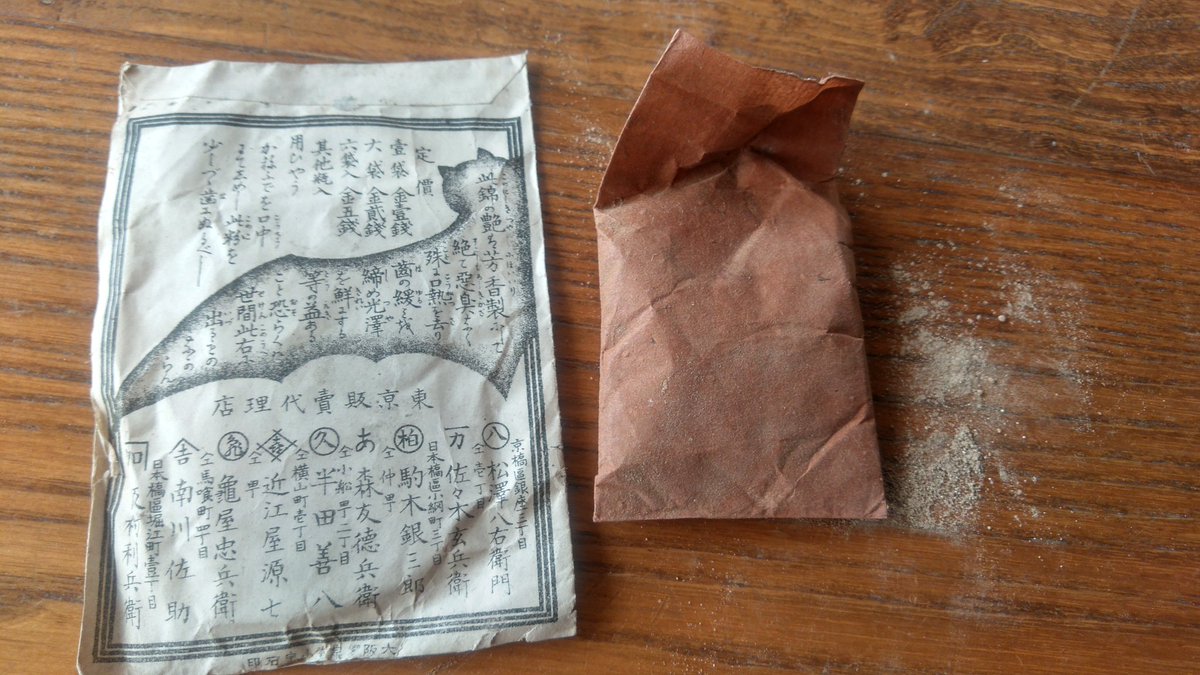 定價
壹袋 金壹錢
大袋 金貳錢
六袋入 金五錢
其他瓶入
用ひやう
口中
此粉を
少しづゝ歯
此錦の艶は芳香製
絶て惡臭なく
殊に口熱を去り
齒の緩
締め光澤
を鮮にする
等の益ある
こと恐らくは
世間此右に
出るもの
東京販賣代理店
京橋區銀座二丁目
松澤八右衛門
仝壱丁目
佐々木玄兵衛
日本橋區小網町三丁目
柏 駒木銀三郎
仝仲町
あ 森友德兵衛
仝小船町二丁目
久 半田善八
仝横山町壱丁目
近江屋源七
仝町
龜 龜屋忠兵衛
仝馬喰町四丁目
南川佐助
日本橋區堀江町壹丁目
村利兵衛
大阪
印